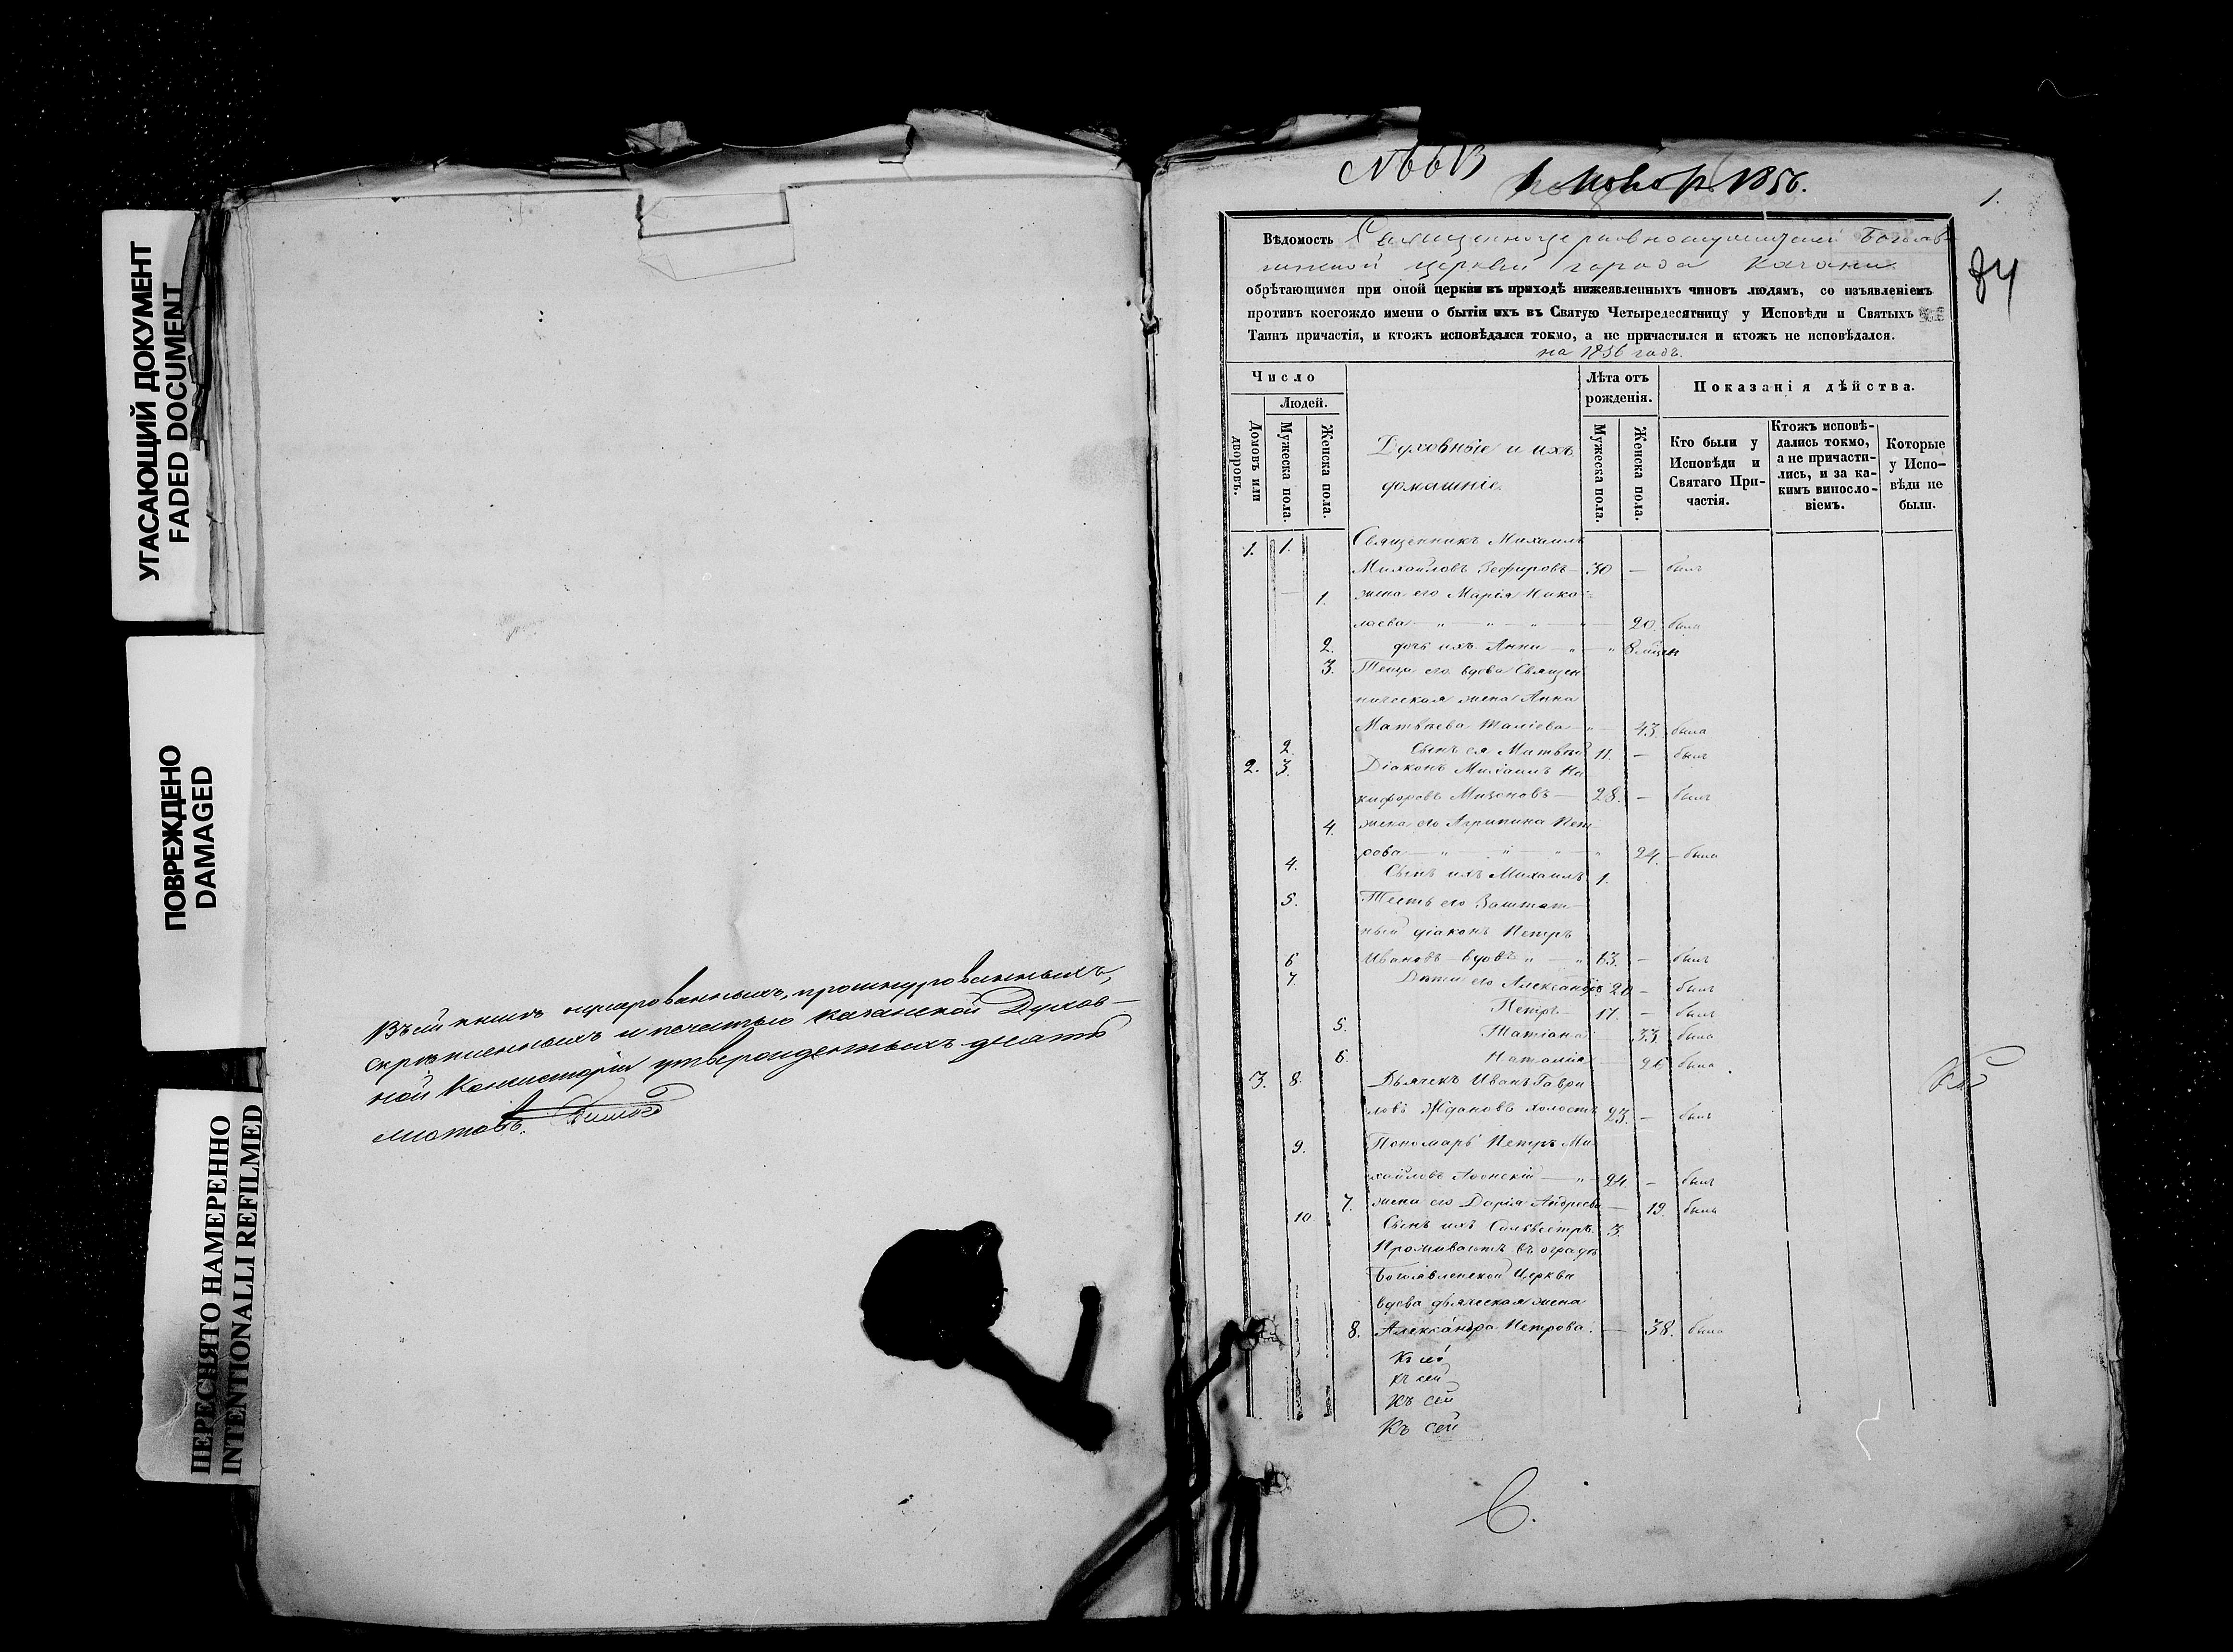 УГАСАЮЩИЙ ДОКУМЕНТ
FADED DOCUMENT
ПОВРЕЖДЕНО
DAMAGED
ПЕРЕСНЯТО НАМЕРЕННО
INTENTIONALLI REFILMED
Въ сей книгѣ нумерованныхъ, прошнурованныхъ,
скрѣпленныхъ и печатью Казанской Духов-
ной Консисторіи утвержденныхъ десять
листовъ.
1856.
1.
84
Вѣдомость Священноцерковнослужителей Богояв-
ленской церкви города Казани
обрѣтающимся при оной церкви въ приходѣ нижеявленныхъ чиновъ людямъ, со изъявленіемъ
противъ коегождо имени о бытіи ихъ въ Святую Четыредесятницу у Исповѣди и Святыхъ
Таинъ причастія, и ктожъ исповѣдался токмо, а не причастился и ктожъ не исповѣдался.
на 1856 годъ.
Число
Людей.
Домовъ или дворовъ.
Мужеска пола.
Женска пола.
Духовные и ихъ
домашніе.
Лѣта отъ
рожденія.
Мужеска пола.
Женска пола.
Показанія дѣйства.
Кто были у
Исповѣди и
Святаго При-
частія.
Ктожъ исповѣ-
дались токмо,
а не причасти-
лись, и за ка-
кимъ винословіемъ.
Которые
у Испо-
вѣди не
были.
1. 1. Священникъ Михаилъ
Михайловъ Зефировъ 30 — былъ
1. жена его Марія Нико-
лаева 20. была
2. дочь ихъ Анна 8 мѣсяц
3. Теща его вдова Священ
ническая жена Анна
Матвѣева 43. была
2. Сынъ ея Матвѣй 11. — былъ
2. 3. Діаконъ Михаилъ Ни
кифоровъ Мизоновъ — 28. — былъ
4. жена его Агрипина Пет
рова 24. — была
4. Сынъ ихъ Михаилъ 1.
5. Тесть его Заштат
ный діаконъ Петръ
6 Ивановъ — вдовъ 63. — былъ
7. Дѣти его Александръ 20 — былъ
Петръ 17. — былъ
5. Татіана 33. была
6. Наталія 26 была
3. 8. Дьячекъ Иванъ Гаври
ловъ Ждановъ холостъ 23. — былъ
9. Пономарь Петръ Ми
хайловъ Афонскій 24. — былъ
7. жена его Дарія Андреева — 19. была
10. Сынъ ихъ Сильвестръ. 3.
Проживаютъ въ оградѣ
Богоявленской Церкви
вдова дьяческая жена
8. Александра Петрова. — 38. была
Къ сей
Къ сей
Къ сей
Къ сей